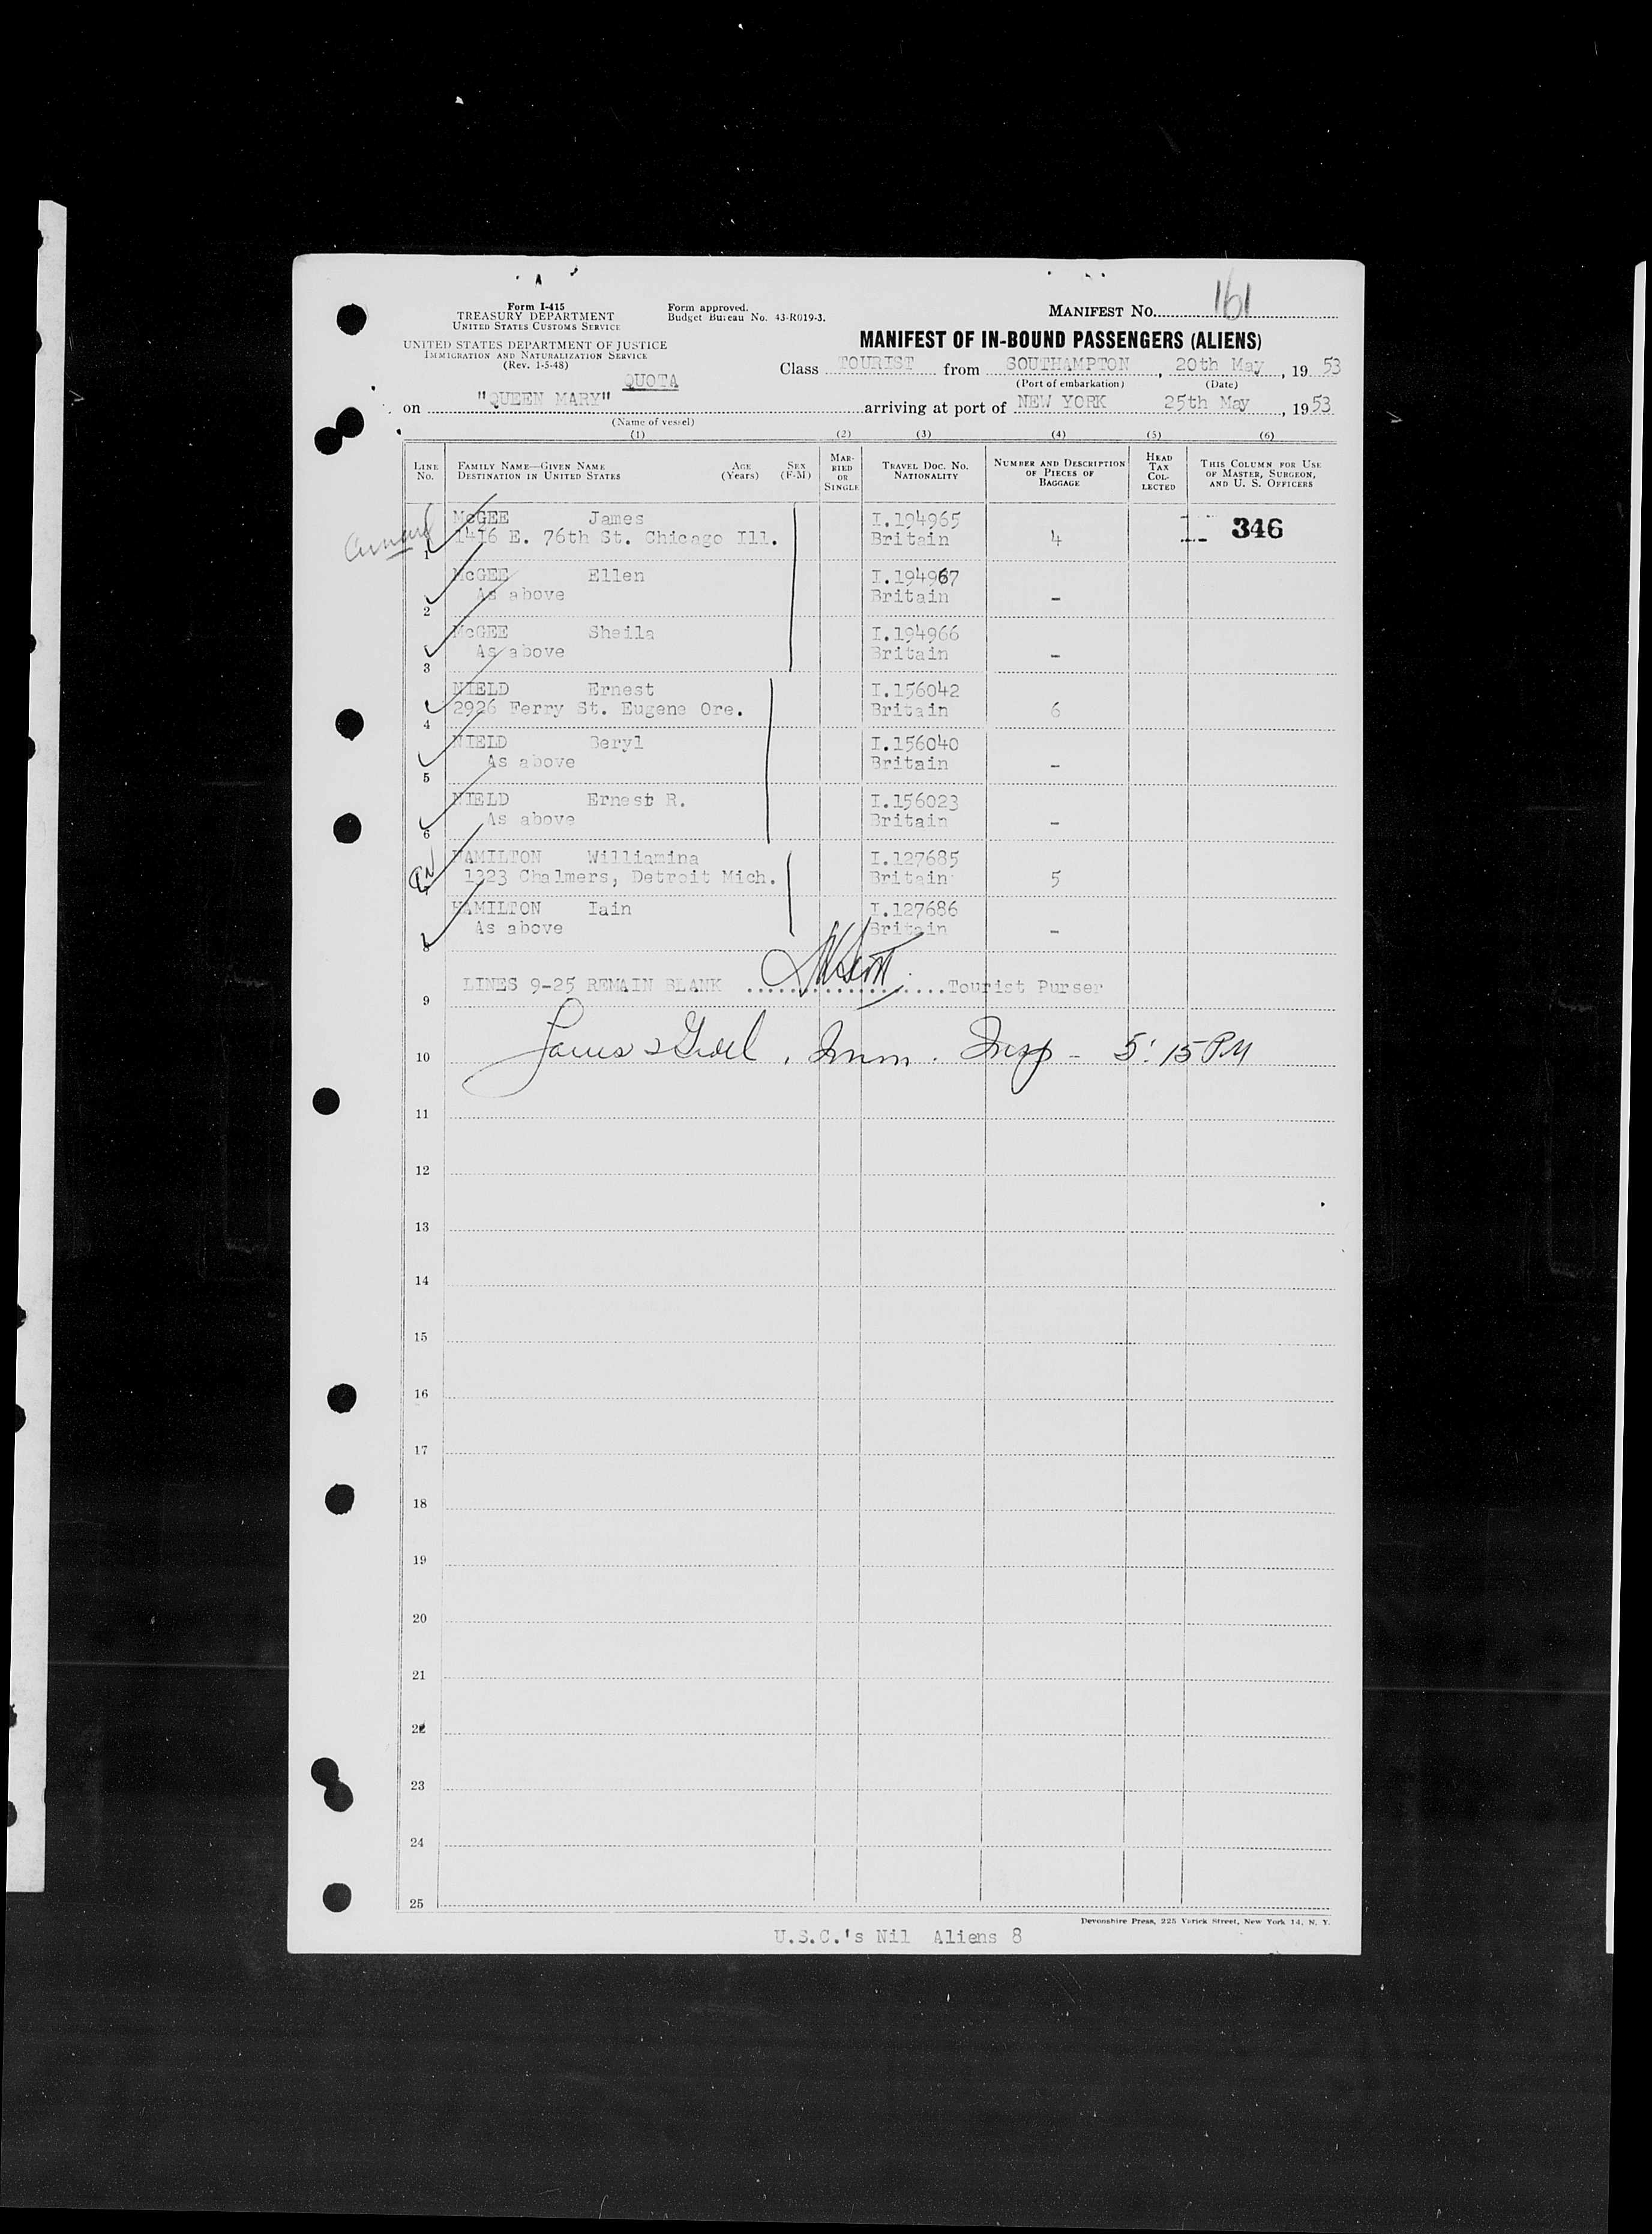 Form I-415
TREASURY DEPARTMENT
UNITED STATES CUSTOMS SERVICE
UNITED STATES DEPARTMENT OF JUSTICE
IMMIGRATION AND NATURALIZATION SERVICE
(Rev. 1-5-48)
Form approved.
Budget Bureau No. 43-R019-3.
MANIFEST No. 161
MANIFEST OF IN-BOUND PASSENGERS (ALIENS)
Class TOURIST from SOUTHAMPTON, 20th May, 19 53
(Port of embarkation) (Date)
QUOTA
on "QUEEN MARY" arriving at port of NEW YORK 25th May, 1953
(Name of vessel)
(1) (2) (3) (4) (5) (6)
LINE No. FAMILY NAME—GIVEN NAME DESTINATION IN UNITED STATES AGE (Years) SEX (F-M) MARRIED OR SINGLE TRAVEL DOC. NO. NATIONALITY NUMBER AND DESCRIPTION OF PIECES OF BAGGAGE HEAD TAX COLLECTED THIS COLUMN FOR USE OF MASTER, SURGEON, AND U. S. OFFICERS
Cunard
McGEE James I.194965 346
1 1416 E. 76th St. Chicago Ill. Britain 4
McGEE Ellen I.194967
2 As above Britain -
McGEE Sheila I.194966
3 As above Britain -
NIELD Ernest I.156042
4 2926 Ferry St. Eugene Ore. Britain 6
NIELD Beryl I.156040
5 As above Britain -
NIELD Ernest R. I.156023
6 As above Britain -
HAMILTON Williamina I.127685
1323 Chalmers, Detroit Mich. Britain 5
HAMILTON Iain I.127686
8 As above Britain -
LINES 9-25 REMAIN BLANK Tourist Purser
9
10 Imm. Insp - 5:15 PM
11
12
13
14
15
16
17
18
19
20
21
22
23
24
25
Devonshire Press, 225 Varick Street, New York 14, N. Y.
U.S.C.'s Nil Aliens 8